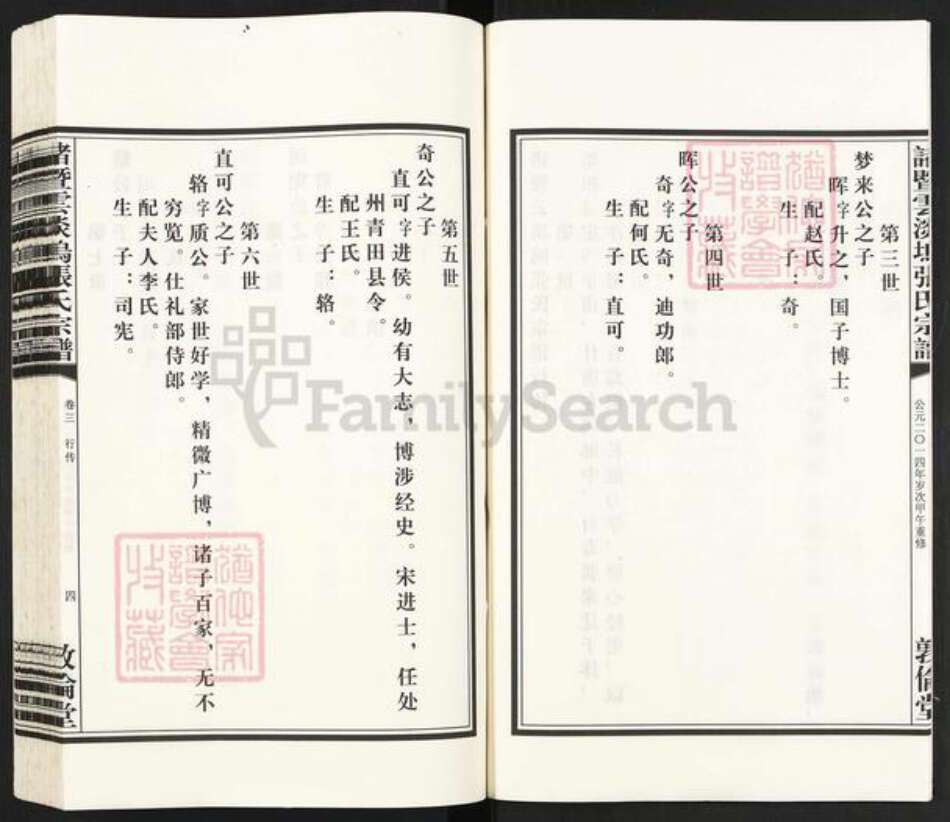 第三世
梦来公之子
晖字升之，国子博士。
配赵氏。
生一子：奇。
第四世
晖公之子
奇字无奇，迪功郎。
配何氏。
生一子：直可。
公元二〇一四年岁次甲午重修
敦倫堂
第五世
奇公之子
直可字进侯。幼有大志，博涉经史。宋进士，任处
州青田县令。
配王氏。
生一子：辂。
第六世
直可公之子
辂字质公。家世好学，精微广博，诸子百家，无不
穷览，仕礼部侍郎。
配夫人李氏。
生一子：司宪。
卷三 行传
四
FamilySearch